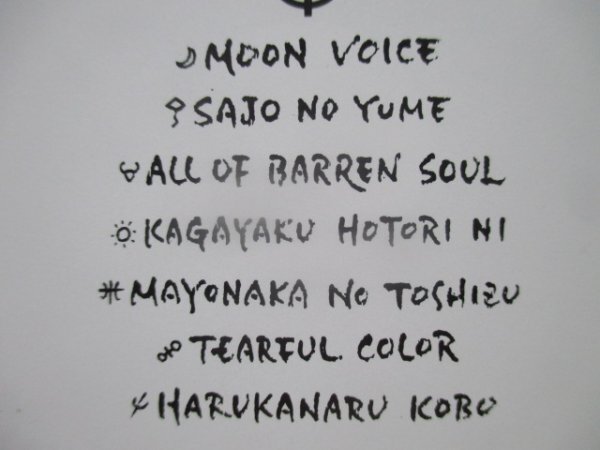 MOON VOICE
SAJO NO YUME
ALL OF BARREN SOUL
KAGAYAKU HOTORI NI
MAYONAKA NO TOSHIZU
TEARFUL COLOR
HARUKANARU KOBO